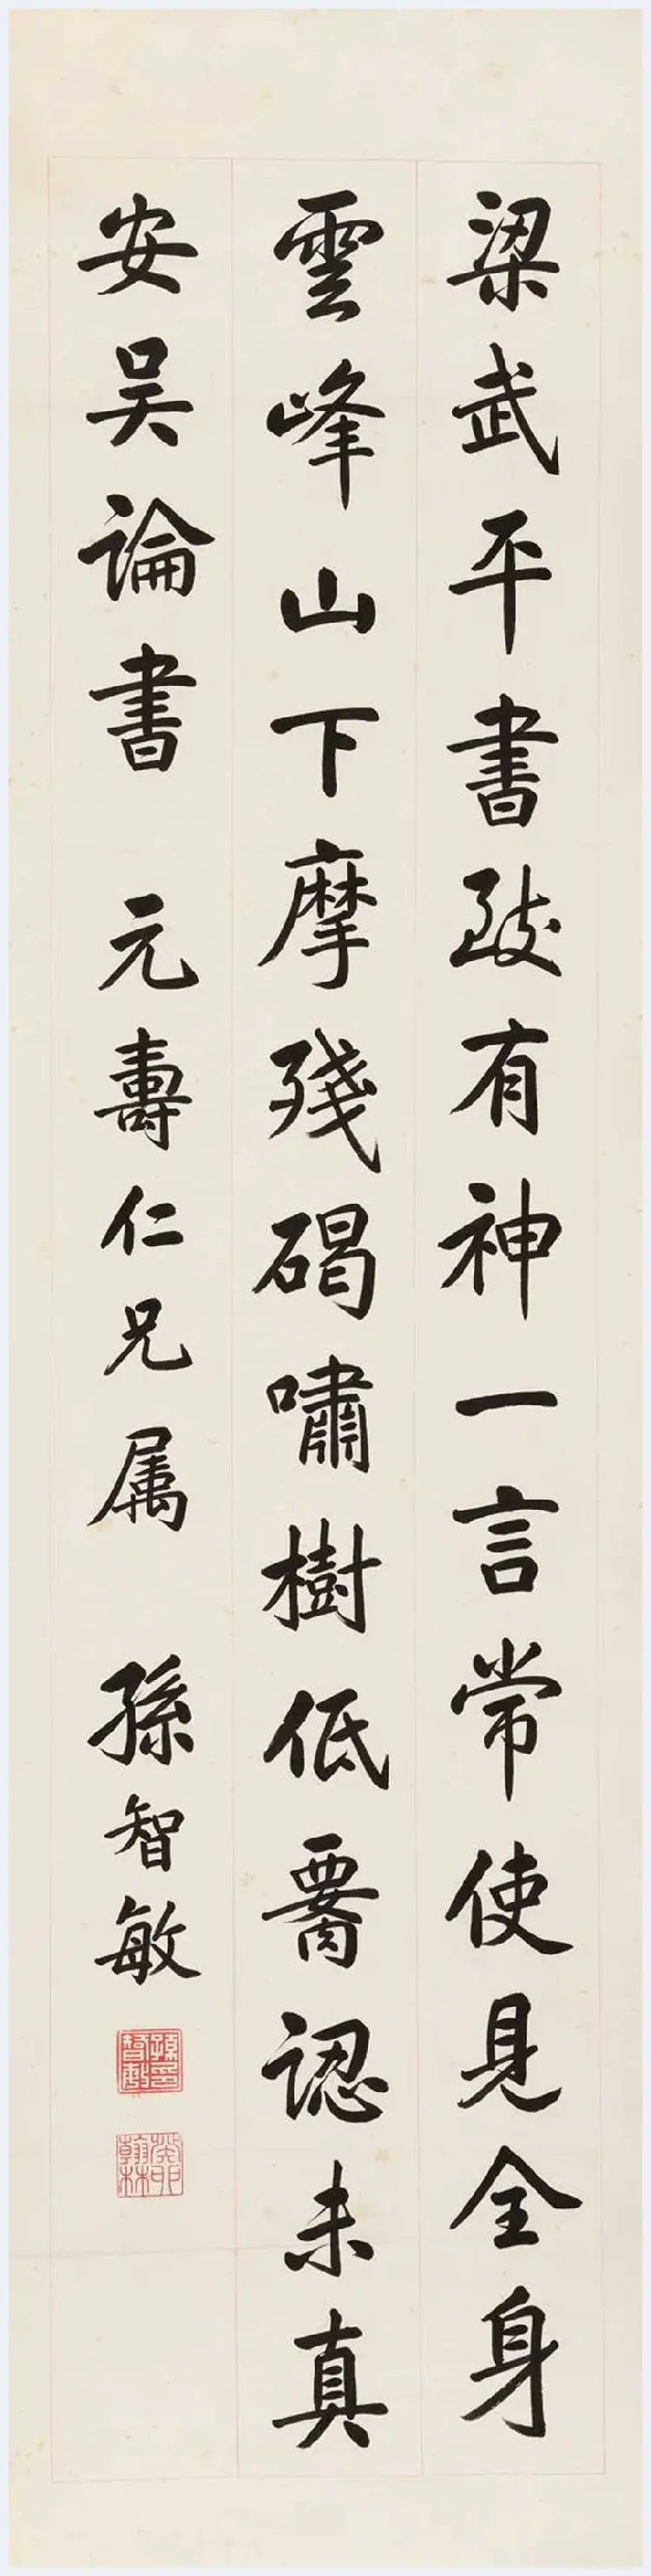 梁武平書致有神一言常使見全身
雲峰山下摩殘碣嘯樹低䨱認未真
安吴論書 元壽仁兄属 孫智敏
孫智敏印